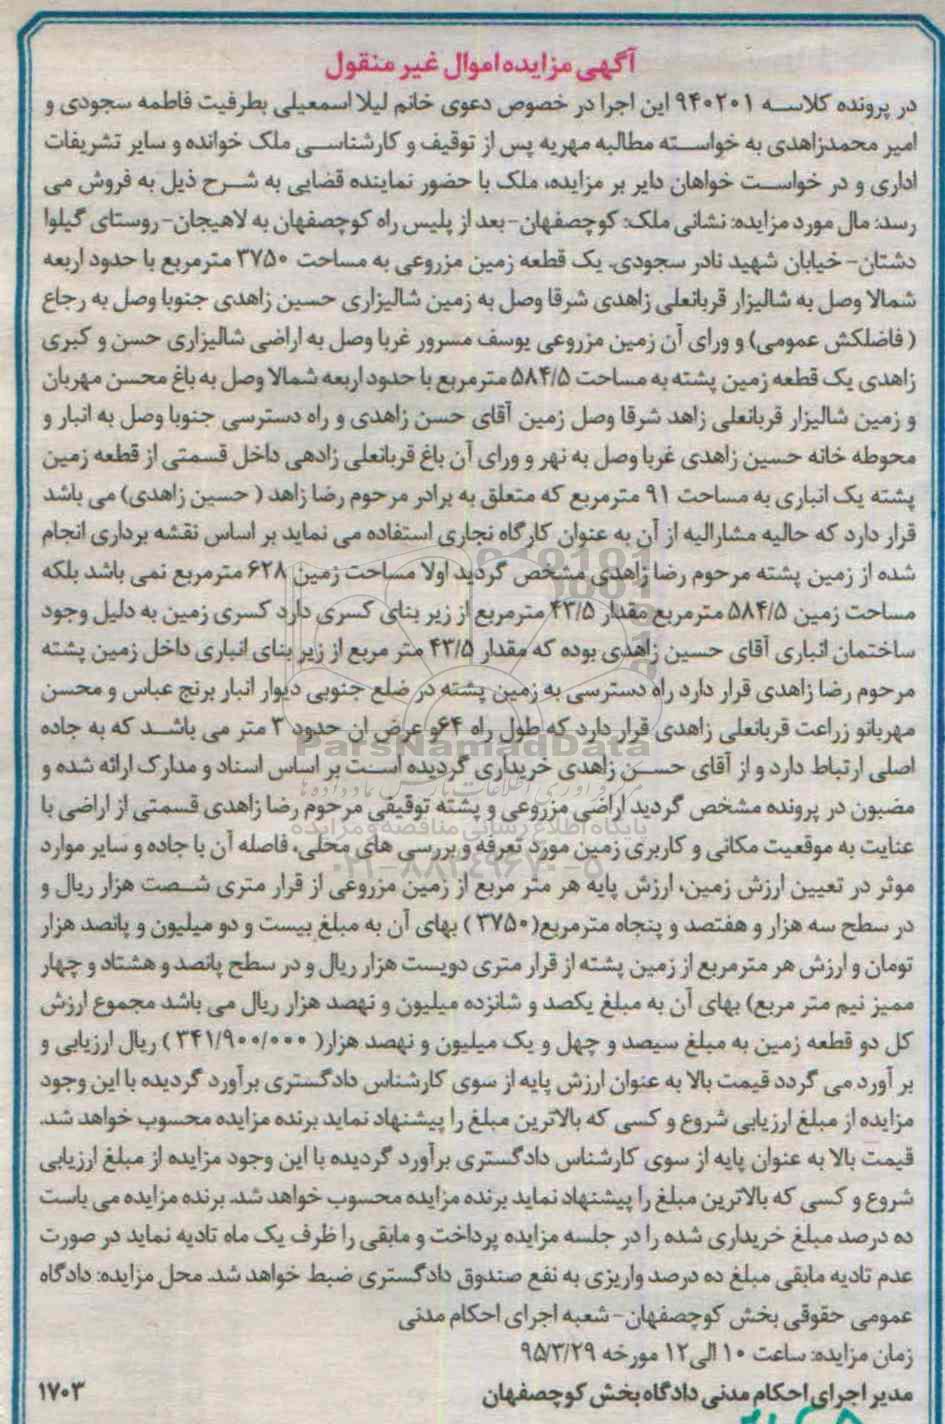 آگهی مزایده اموال غیر منقول
در پرونده کلاسه ۹۴۰۲۰۱ این اجرا در خصوص دعوی خانم لیلا اسمعیلی بطرفیت فاطمه سجودی و
امیر محمدزاهدی به خواسته مطالبه مهریه پس از توقیف و کارشناسی ملک خوانده و سایر تشریفات
اداری و در خواست خواهان دایر بر مزایده، ملک با حضور نماینده قضایی به شرح ذیل به فروش می
رسد: مال مورد مزایده: نشانی ملک: کوچصفهان- بعد از پلیس راه کوچصفهان به لاهیجان- روستای گیلوا
دشتان- خیابان شهید نادر سجودی. یک قطعه زمین مزروعی به مساحت ۳۷۵۰ مترمربع با حدود اربعه
شمالا وصل به شالیزار قربانعلی زاهدی شرقا وصل به زمین شالیزاری حسین زاهدی جنوبا وصل به رجاع
( فاضلکش عمومی) و ورای آن زمین مزروعی یوسف مسرور غربا وصل به اراضی شالیزاری حسن و کبری
زاهدی یک قطعه زمین پشته به مساحت ۵۸۴/۵ مترمربع با حدود اربعه شمالا وصل به باغ محسن مهربان
و زمین شالیزار قربانعلی زاهد شرقا وصل زمین آقای حسن زاهدی و راه دسترسی جنوبا وصل به انبار و
محوطه خانه حسین زاهدی غربا وصل به نهر و ورای آن باغ قربانعلی زادهی داخل قسمتی از قطعه زمین
پشته یک انباری به مساحت ۹۱ مترمربع که متعلق به برادر مرحوم رضا زاهد ( حسین زاهدی) می باشد
قرار دارد که حالیه مشارالیه از آن به عنوان کارگاه نجاری استفاده می نماید بر اساس نقشه برداری انجام
شده از زمین پشته مرحوم رضا زاهدی مشخص گردید اولا مساحت زمین ۶۲۸ مترمربع نمی باشد بلکه
مساحت زمین ۵۸۴/۵ مترمربع مقدار ۴۳/۵ مترمربع از زیر بنای کسری دارد کسری زمین به دلیل وجود
ساختمان انباری آقای حسین زاهدی بوده که مقدار ۴۳/۵ متر مربع از زیر بنای انباری داخل زمین پشته
مرحوم رضا زاهدی قرار دارد راه دسترسی به زمین پشته در ضلع جنوبی دیوار انبار برنج عباس و محسن
مهربانو زراعت قربانعلی زاهدی قرار دارد که طول راه ۶۴و عرض ان حدود ۳ متر می باشد که به جاده
اصلی ارتباط دارد و از آقای حسن زاهدی خریداری گردیده است بر اساس اسناد و مدارک ارائه شده و
مضبون در پرونده مشخص گردید اراضی مزروعی و پشته توقیفی مرحوم رضا زاهدی قسمتی از اراضی با
عنایت به موقعیت مکانی و کاربری زمین مورد تعرفه و بررسی های محلی، فاصله آن با جاده و سایر موارد
موثر در تعیین ارزش زمین، ارزش پایه هر متر مربع از زمین مزروعی از قرار متری شصت هزار ریال و
در سطح سه هزار و هفتصد و پنجاه مترمربع(۳۷۵۰ ) بهای آن به مبلغ بیست و دو میلیون و پانصد هزار
تومان و ارزش هر مترمربع از زمین پشته از قرار متری دویست هزار ریال و در سطح پانصد و هشتاد و چهار
ممیز نیم متر مربع) بهای آن به مبلغ یکصد و شانزده میلیون و نهصد هزار ریال می باشد مجموع ارزش
کل دو قطعه زمین به مبلغ سیصد و چهل و یک میلیون و نهصد هزار( ۳۴۱/۹۰۰/۰۰۰ ) ریال ارزیابی و
بر آورد می گردد قیمت بالا به عنوان ارزش پایه از سوی کارشناس دادگستری برآورد گردیده با این وجود
مزایده از مبلغ ارزیابی شروع و کسی که بالاترین مبلغ را پیشنهاد نماید برنده مزایده محسوب خواهد شد.
قیمت بالا به عنوان پایه از سوی کارشناس دادگستری برآورد گردیده با این وجود مزایده از مبلغ ارزیابی
شروع و کسی که بالاترین مبلغ را پیشنهاد نماید برنده مزایده محسوب خواهد شد. برنده مزایده می بایست
ده درصد مبلغ خریداری شده را در جلسه مزایده پرداخت و مابقی را ظرف یک ماه تادیه نماید در صورت
عدم تادیه مابقی مبلغ ده درصد واریزی به نفع صندوق دادگستری ضبط خواهد شد. محل مزایده: دادگاه
عمومی حقوقی بخش کوچصفهان- شعبه اجرای احکام مدنی
زمان مزایده: ساعت ۱۰ الی ۱۲ مورخه ۹۵/۳/۲۹
مدیر اجرای احکام مدنی دادگاه بخش کوچصفهان ۱۷۰۳
ParsNamadData
پایگاه اطلاع رسانی مناقصه و مزایده